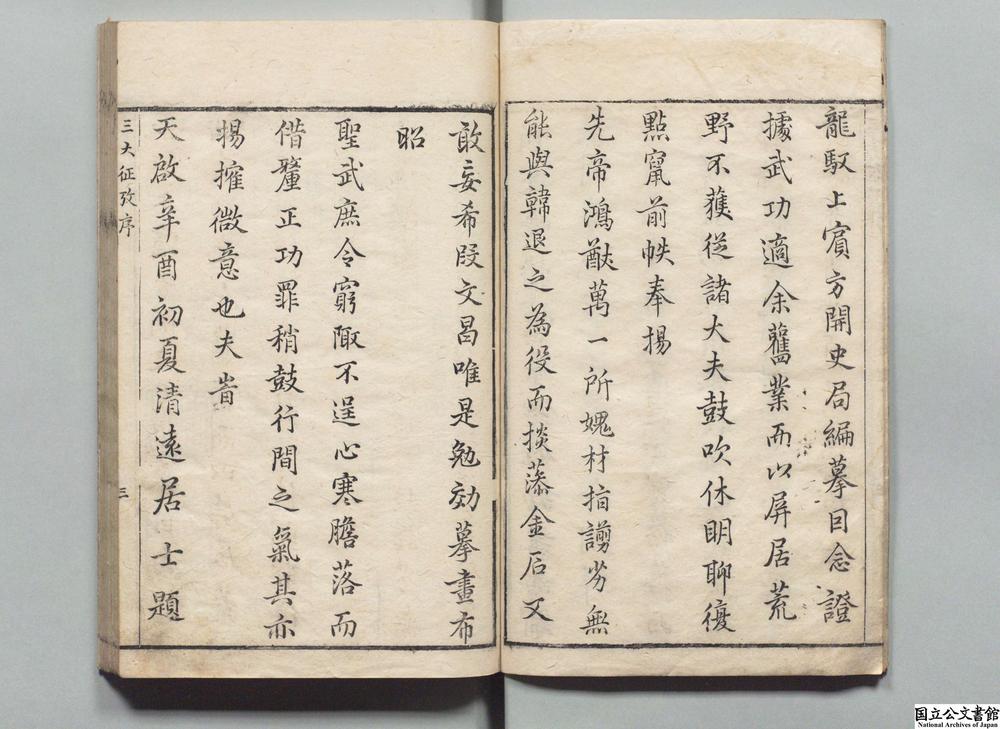 龍馭上賓方開史局編摹因念證
據武功適余舊業而以屏居荒
野不獲從諸大夫鼓吹休明聊復
點竄前帙奉揚
先帝鴻猷萬一所媿材拙謭劣無
能與韓退之為役而掞藻金石又
敢妄希段文昌唯是勉効摹畫布
昭
聖武庶令窮陬不逞心寒膽落而
借釐正功罪稍鼓行間之氣其亦
揚搉微意也夫峕
天啟辛酉初夏清遠居士題
三大征攷序
三
国立公文書館
National Archives of Japan